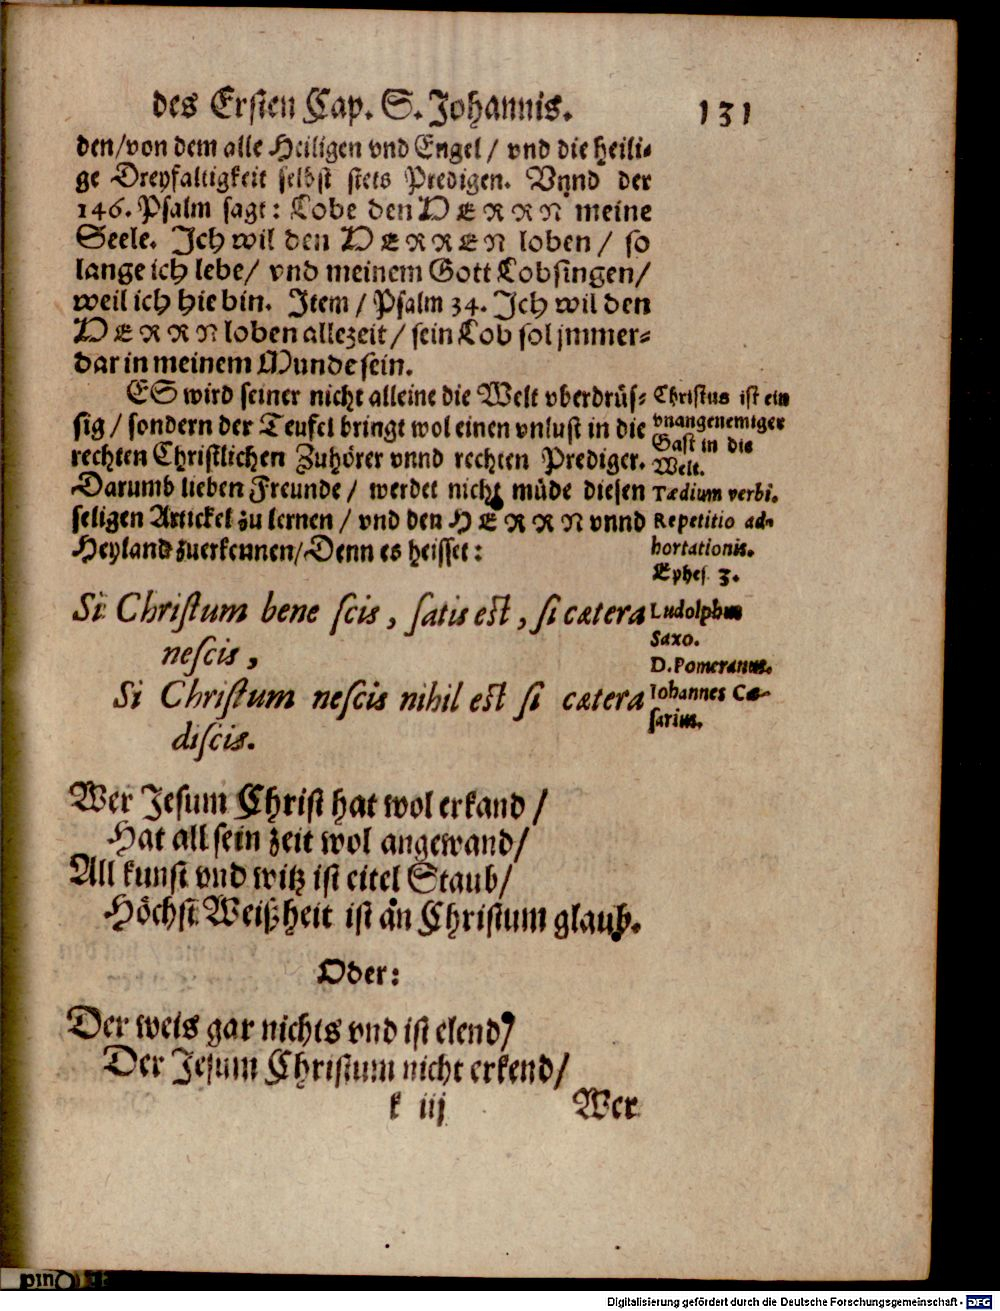 des Ersten Cap. S. Johannis. 131
den/von dem alle Heiligen vnd Engel / vnd die heili-
ge Dreyfaltigkeit selbst stets Predigen. Vnnd der
146. Psalm sagt: Lobe den HERRN meine
Seele. Ich wil den HERREN loben / so
lange ich lebe/ vnd meinem Gott Lobsingen/
weil ich hie bin. Item / Psalm 34. Ich wil den
HERRN loben allezeit / sein Lob sol jmmer-
dar in meinem Munde sein.
ES wird seiner nicht alleine die Welt vberdrüs-
sig / sondern der Teufel bringt wol einen vnlust in die
rechten Christlichen Zuhörer vnnd rechten Prediger.
Darumb lieben Freunde / werdet nicht müde diesen
seligen Artickel zu lernen / vnd den HERRN vnnd
Heyland zuerkennen/Denn es heisset:
Christus ist ein
vnangenemiger
Gast in die
Welt.
Tædium verbi.
Repetitio ad-
hortationis.
Ephes. 3.
Si Christum bene scis, satis est, si cætera
nescis,
Si Christum nescis nihil est si cætera
discis.
Ludolphus
Saxo.
D. Pomeranus.
Iohannes Cæ-
sarius.
Wer Jesum Christ hat wol erkand /
Hat all sein zeit wol angewand/
All kunst vnd witz ist eitel Staub/
Höchst Weißheit ist an Christum glaub.
Oder:
Der weis gar nichts vnd ist elend/
Der Jesum Christum nicht erkend/
k iij Wer
Digitalisierung gefördert durch die Deutsche Forschungsgemeinschaft - DFG